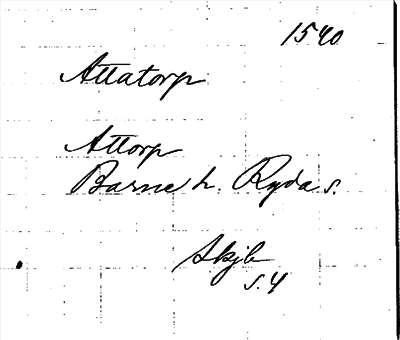 1540
Attatorp
Attorp
Barne h. Ryda s.
Skjb
s. 4